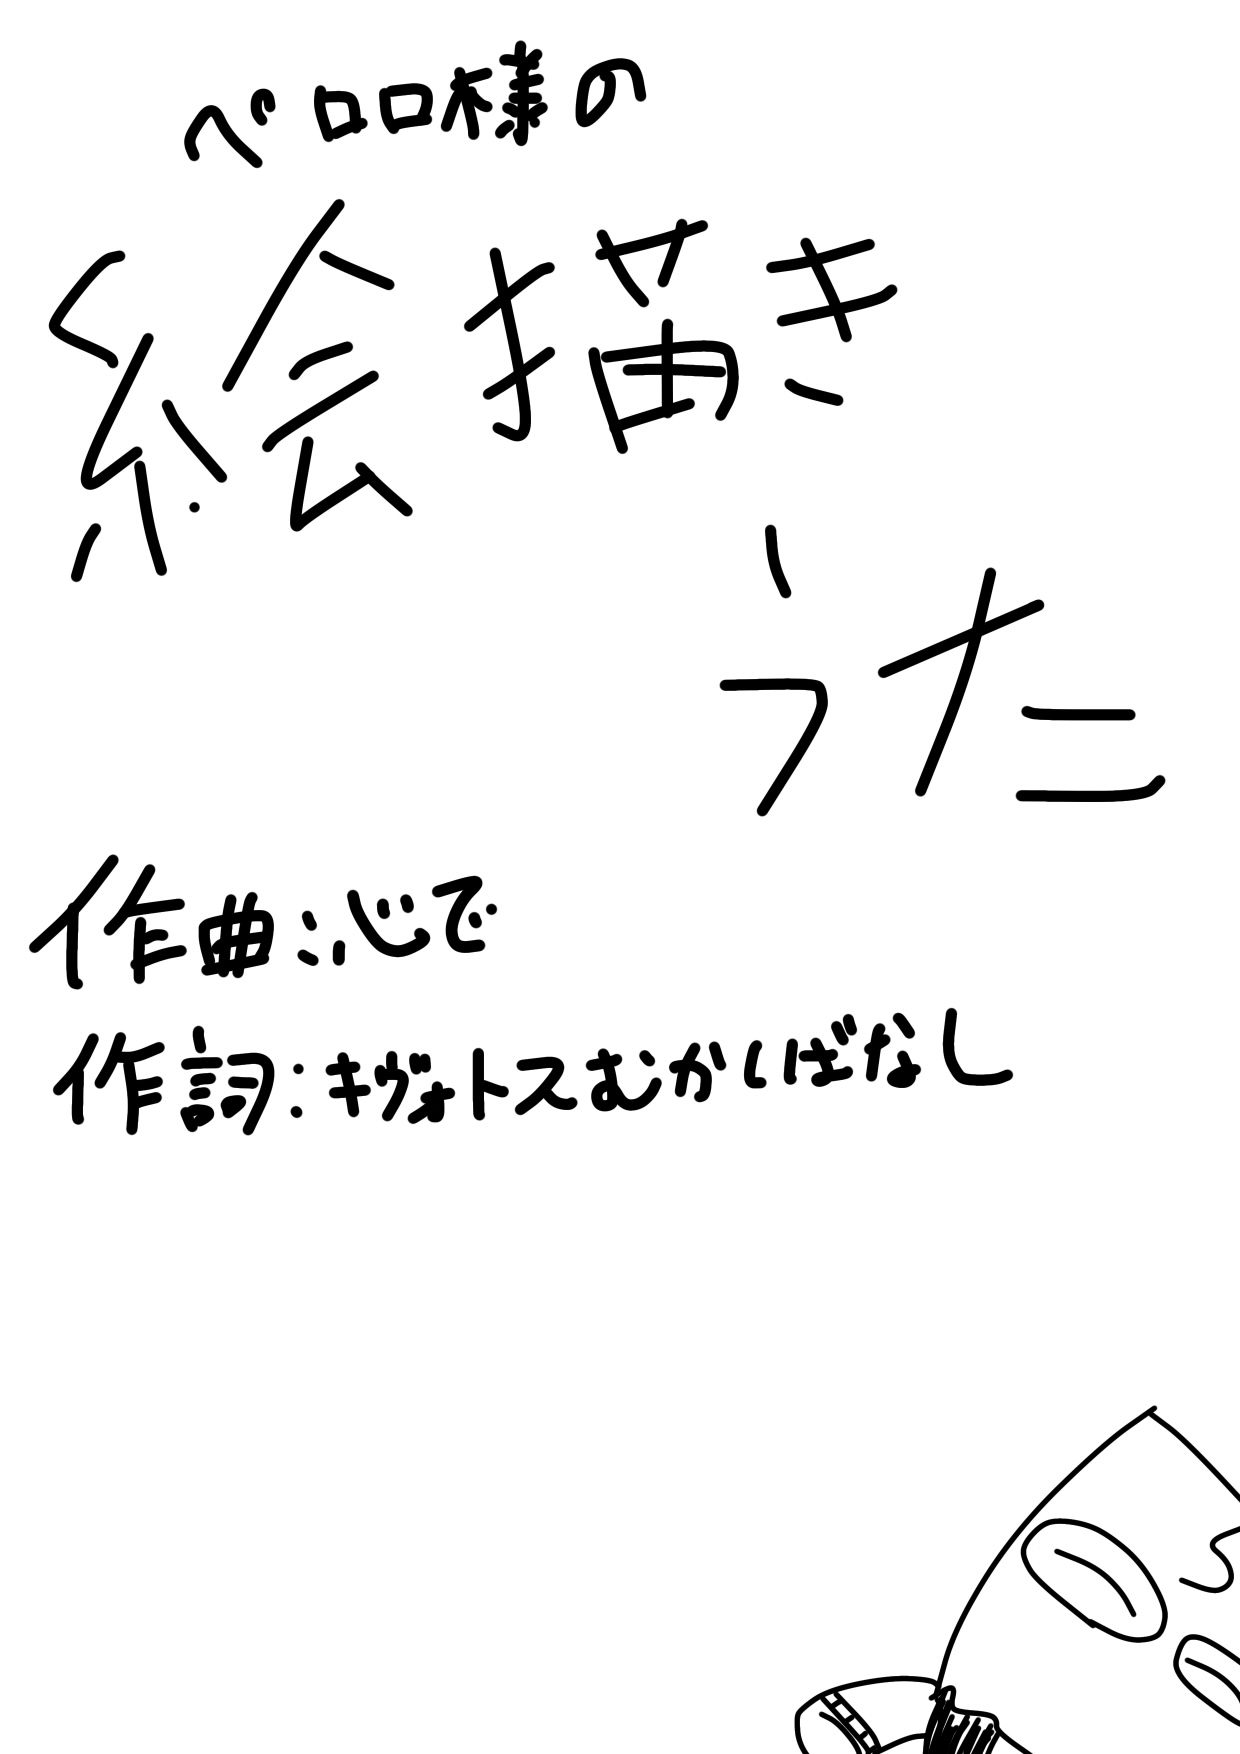 ペロロ様の
絵描き
うた
作曲:心で
作詞:キヴォトスむかしばなし